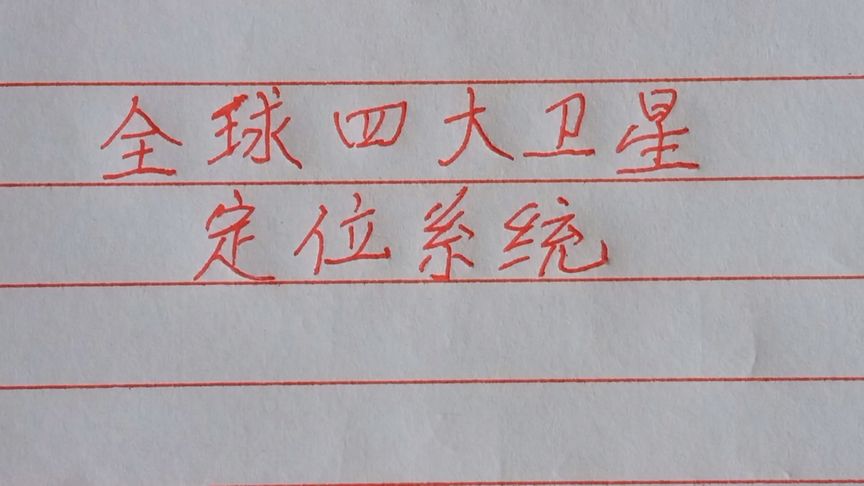 全球四大卫星
定位系统